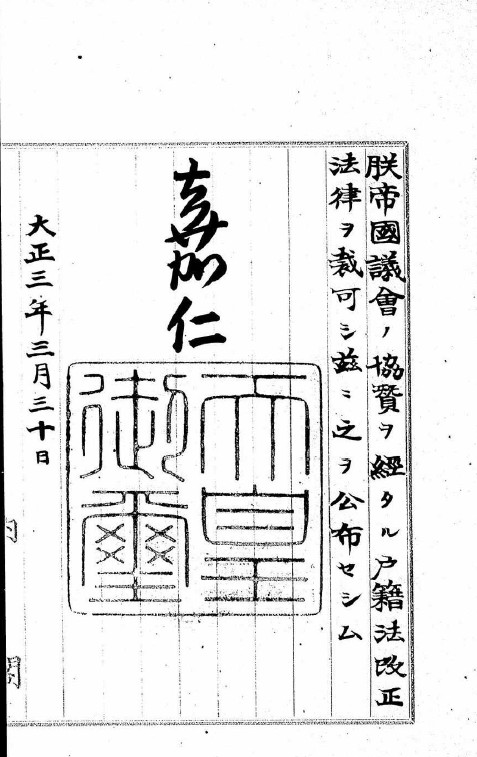 朕帝國議會ノ協賛ヲ經タル戸籍法改正
法律ヲ裁可シ茲ニ之ヲ公布セシム
嘉仁
天皇
御璽
大正三年三月三十日
内
閣